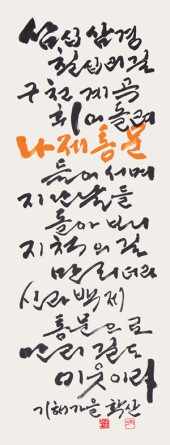 삼십삼경
칠십리길
구천계곡
휘어돌려
나제통문
들어서며
지난날들
돌아보니
지척의길
만리더라
신라백제
통문으로
만리길도
이웃이라
기해가을 학산